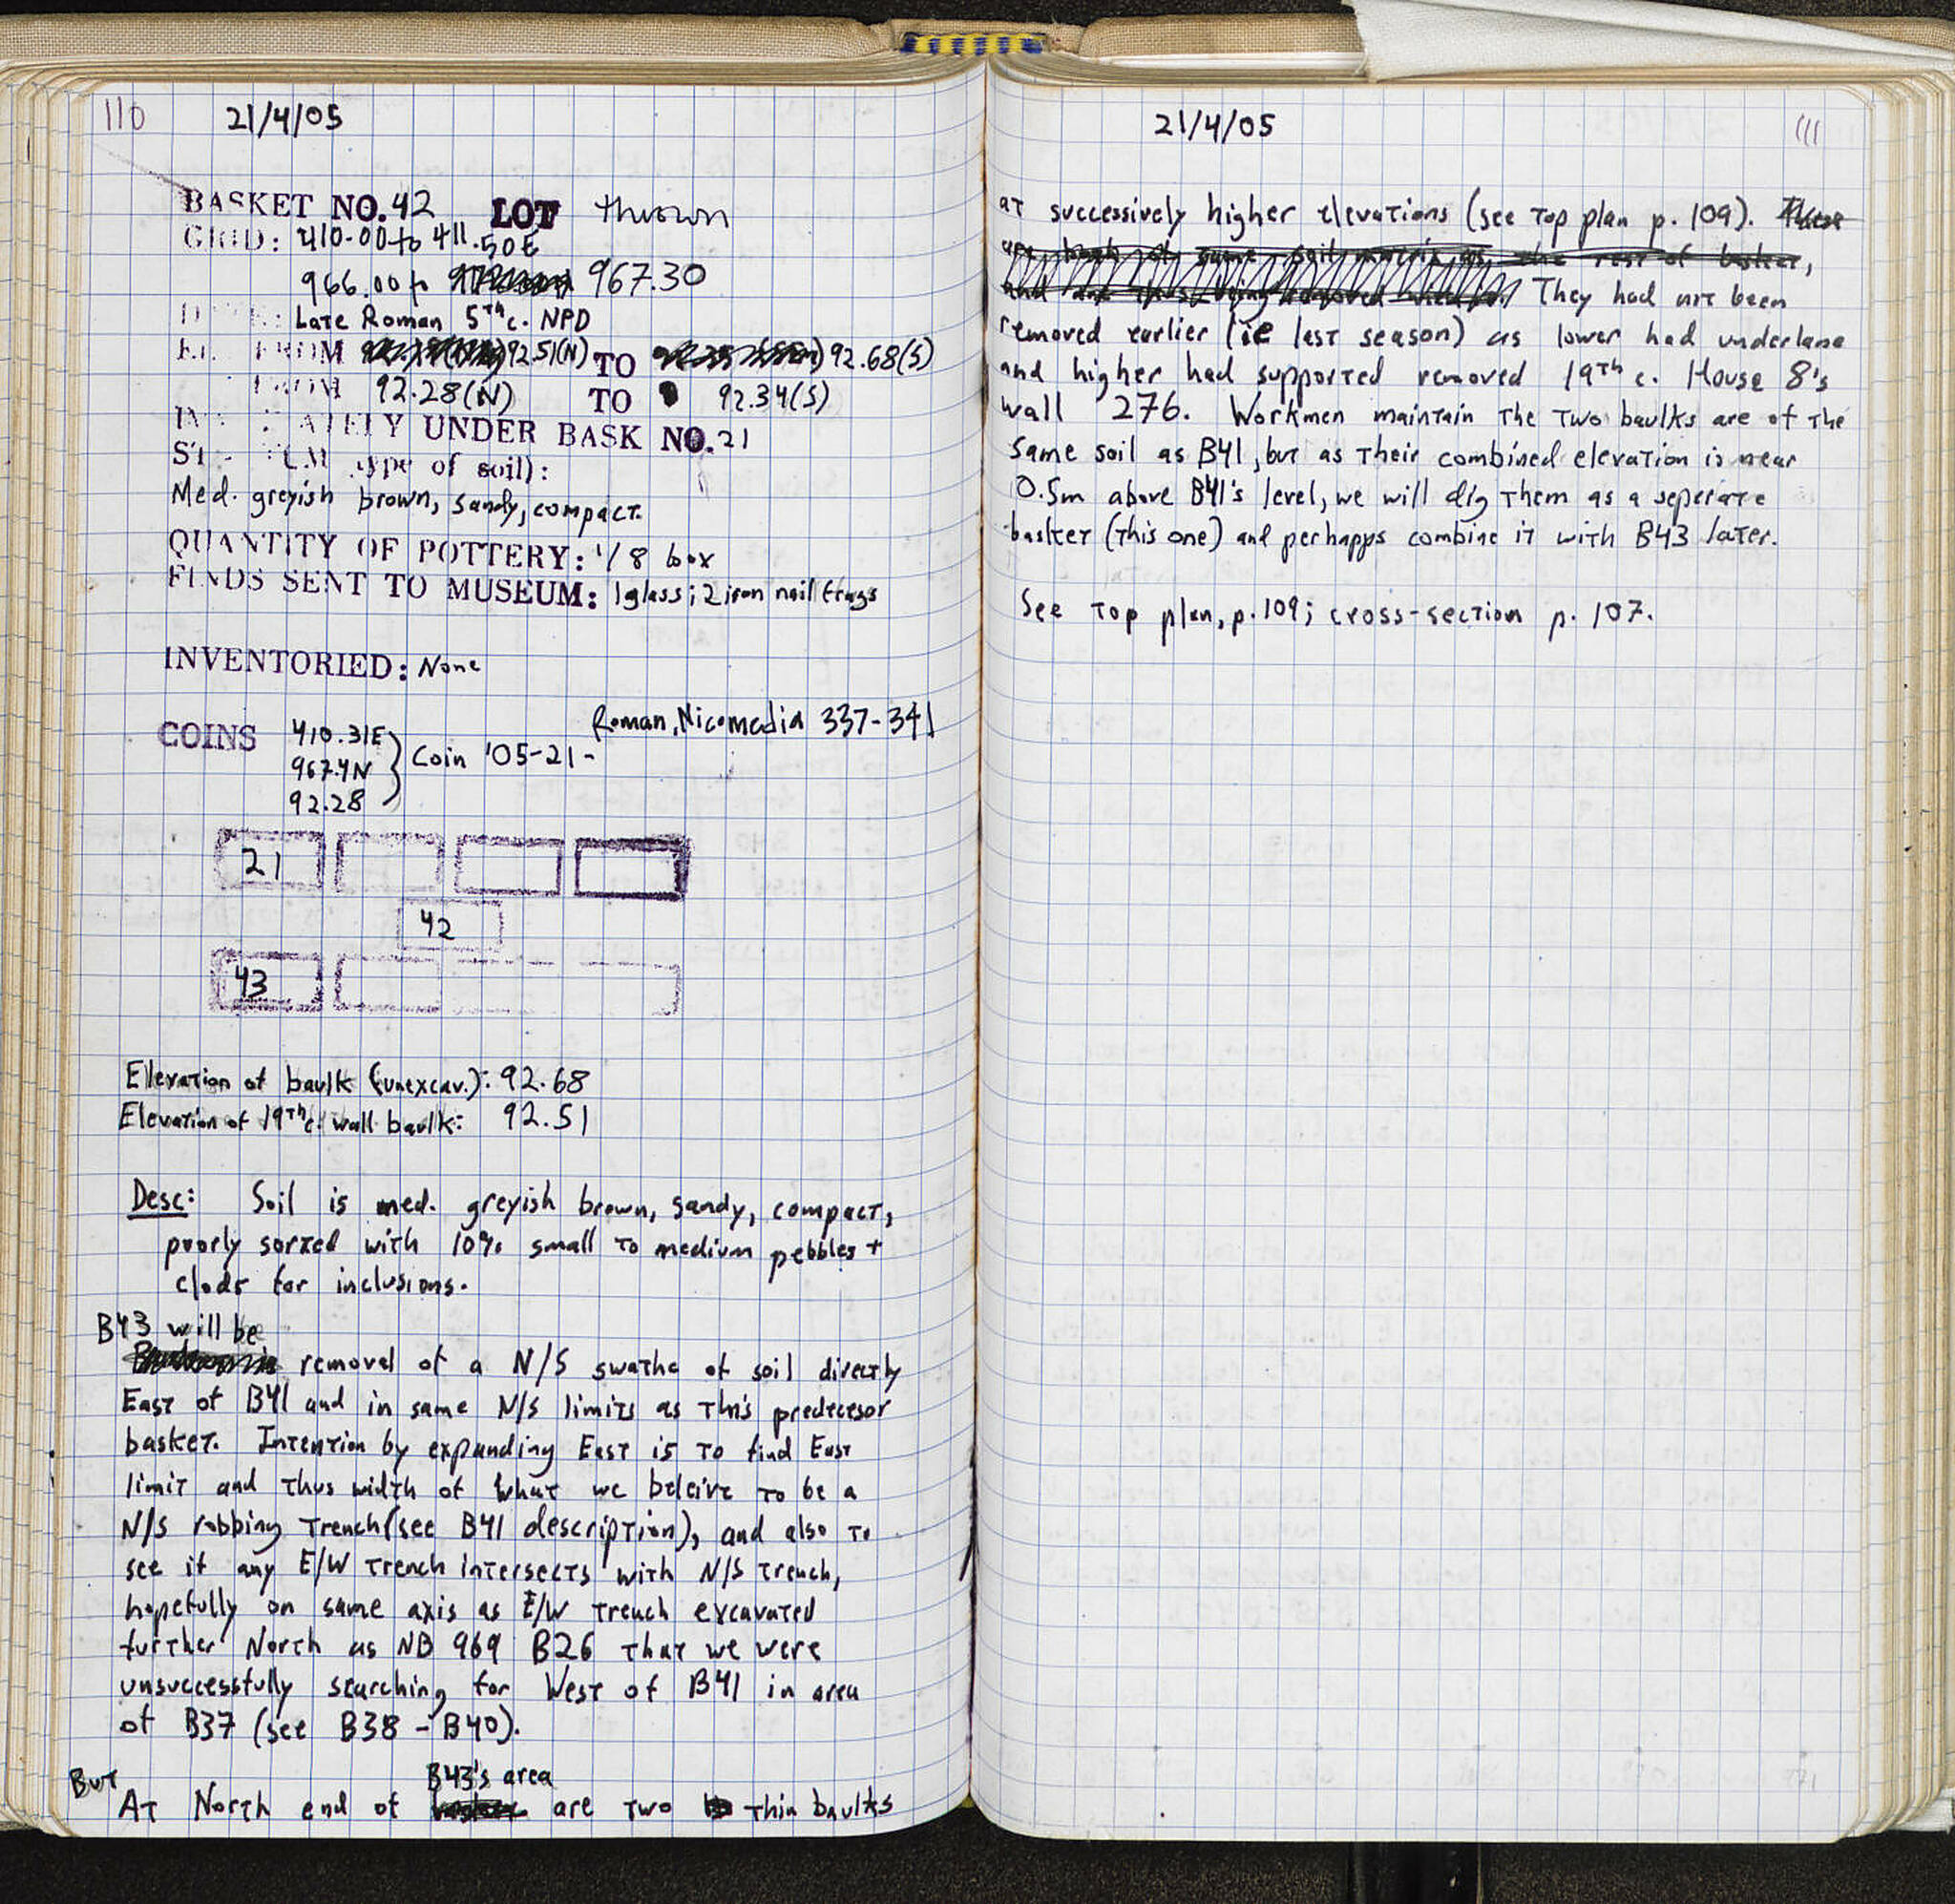 110 21/4/05
BASKET NO. 42 LOT thrown
GRID: 410.00 to 411.50E
966.00 to 967.30
Late Roman 5th c. NPD
FROM 92.51(N) TO 92.68(S)
FROM 92.28(N) TO 92.34(S)
UNDER BASK NO. 21
type of soil):
Med. greyish brown, sandy, compact.
QUANTITY OF POTTERY: 1/8 box
FINDS SENT TO MUSEUM: 1 glass; 2 iron nail frags
INVENTORIED: None
Roman, Nicomedia 337-341
COINS 410.31E
967.4N } Coin '05-21-
92.28
21
42
43
Elevation of baulk (unexcav.): 92.68
Elevation of 19th c. wall baulk: 92.51
Desc: Soil is med. greyish brown, sandy, compact,
poorly sorted with 10% small to medium pebbles +
clods for inclusions.
B43 will be
removal of a N/S swathe of soil directly
East of B41 and in same N/S limits as this predecesor
basket. Intention by expanding East is to find East
limit and thus width of what we beleive to be a
N/S robbing trench (see B41 description), and also to
see if any E/W trench intersects with N/S trench,
hopefully on same axis as E/W trench excavated
further North as NB 969 B26 that we were
unsuccessfully searching for West of B41 in area
of B37 (see B38 - B40).
But B43's area
At North end of are two thin baulks
21/4/05 111
at successively higher elevations (see top plan p. 109). These
are same soil matrix as the rest of basket,
They had not been
removed earlier (ie last season) as lower had underlane
and higher had supported removed 19th c. House 8's
wall 276. Workmen maintain the two baulks are of the
same soil as B41, but as their combined elevation is near
0.5m above B41's level, we will dig them as a seperate
basket (this one) and perhapps combine it with B43 later.
See top plan, p. 109; cross-section p. 107.